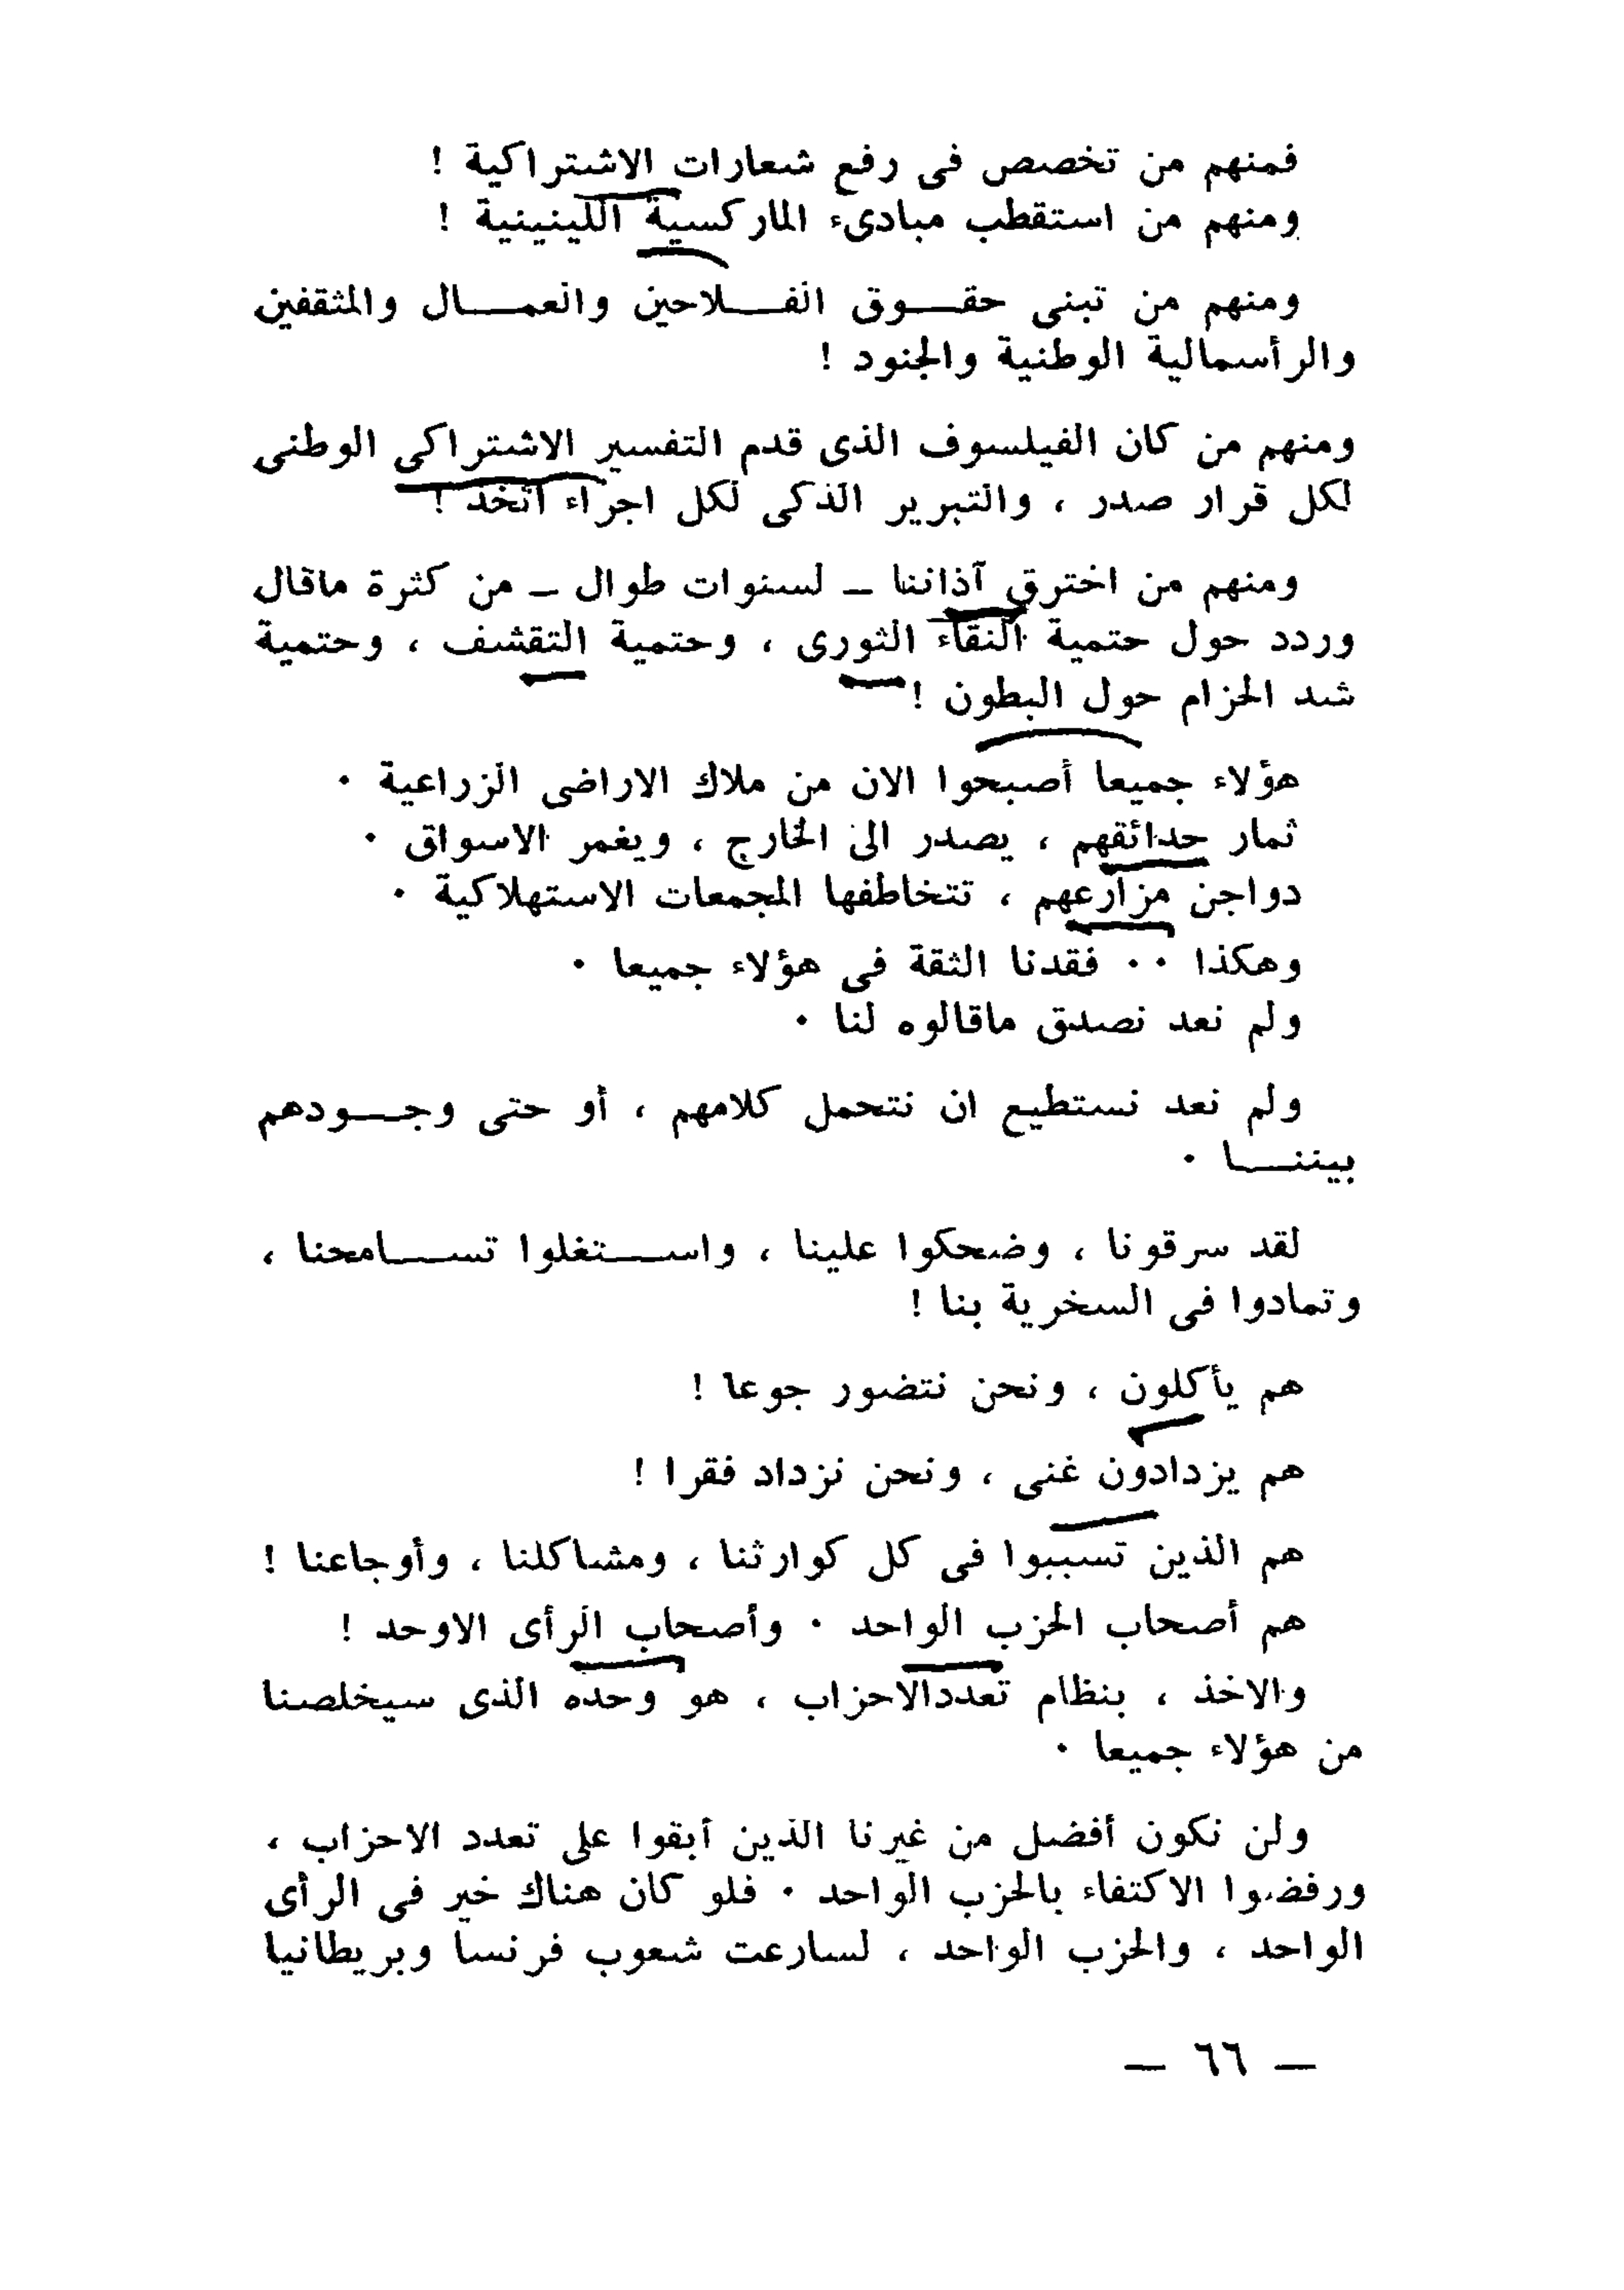 فمنهم من تخصص فى رفع شعارات الاشتراكية !
ومنهم من استقطب مبادىء الماركسية اللينينية !
ومنهم من تبنى حقـــوق الفــــلاحين والعمــــال والمثقفين
والرأسمالية الوطنية والجنود !
ومنهم من كان الفيلسوف الذى قدم التفسير الاشتراكى الوطنى
لكل قرار صدر ، والتبرير الذكى لكل اجراء اتخذ !
ومنهم من اخترق آذاننا ــ لسنوات طوال ــ من كثرة ماقال
وردد حول حتمية النقاء الثورى ، وحتمية التقشف ، وحتمية
شد الحزام حول البطون !
هؤلاء جميعا أصبحوا الان من ملاك الاراضى الزراعية .
ثمار حدائقهم ، يصدر الى الخارج ، ويغمر الاسواق .
دواجن مزارعهم ، تتخاطفها المجمعات الاستهلاكية .
وهكذا .. فقدنا الثقة فى هؤلاء جميعا .
ولم نعد نصدق ماقالوه لنا .
ولم نعد نستطيع ان نتحمل كلامهم ، أو حتى وجـــودهم
بيننــــا .
لقد سرقونا ، وضحكوا علينا ، واســــتغلوا تســــامحنا ،
وتمادوا فى السخرية بنا !
هم يأكلون ، ونحن نتضور جوعا !
هم يزدادون غنى ، ونحن نزداد فقرا !
هم الذين تسببوا فى كل كوارثنا ، ومشاكلنا ، وأوجاعنا !
هم أصحاب الحزب الواحد . وأصحاب الرأى الاوحد !
والاخذ ، بنظام تعددالاحزاب ، هو وحده الذى سيخلصنا
من هؤلاء جميعا .
ولن نكون أفضل من غيرنا الذين أبقوا على تعدد الاحزاب ،
ورفضوا الاكتفاء بالحزب الواحد . فلو كان هناك خير فى الرأى
الواحد ، والحزب الواحد ، لسارعت شعوب فرنسا وبريطانيا
— ٦٦ —